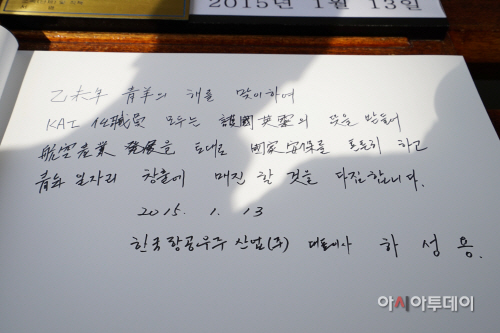 2015년 1월 13일
乙未年 青羊의 해를 맞이하여
KAI 任職員 모두는 護國英靈의 뜻을 받들어
航空産業 發展을 토대로 國家安保를 튼튼히 하고
靑年 일자리 창출에 매진 할 것을 다짐합니다.
2015. 1. 13
한국항공우주산업(주) 대표이사 하 성 용.
아시아투데이